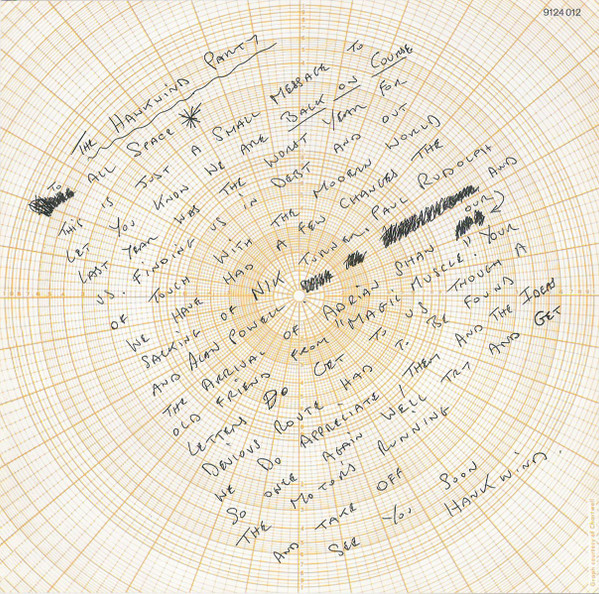 9124 012
THE HAWKWIND PARTY
TO ALL SPACE
THIS IS JUST A SMALL MESSAGE TO
LET YOU KNOW WE ARE BACK ON COURSE
LAST YEAR WAS THE WORST YEAR FOR
US. FINDING US IN DEBT AND OUT
OF TOUCH WITH THE MODERN WORLD
WE HAVE HAD A FEW CHANGES THE
SACKING OF NIK TURNER, PAUL RUDOLPH
AND ALAN POWELL AND
THE ARRIVAL OF ADRIAN SHAW OUR
OLD FRIEND FROM "MAGIC MUSCLE." YOUR
LETTERS DO GET TO US THOUGH A
DEVIOUS ROUTE HAD TO BE FOUND
WE DO APPRECIATE THEM AND THE IDEAS
SO ONCE AGAIN WE'LL TRY AND GET
THE MOTORS RUNNING
AND TAKE OFF
SEE YOU SOON
HAWKWIND.
Graph courtesy of Chartwell